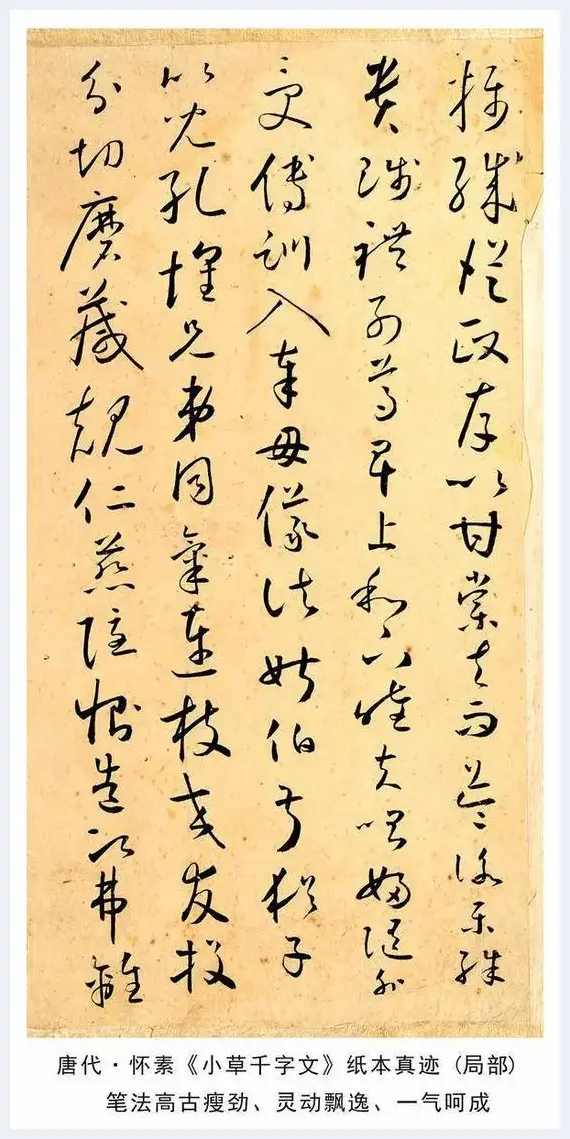 攝職從政存以甘棠去而益詠樂殊
貴賤禮別尊卑上和下睦夫唱婦隨外
受傅訓入奉母儀諸姑伯叔猶子
比兒孔懷兄弟同氣連枝交友投
分切磨箴規仁慈隱惻造次弗離
唐代·怀素《小草千字文》纸本真迹（局部）
笔法高古瘦劲、灵动飘逸、一气呵成